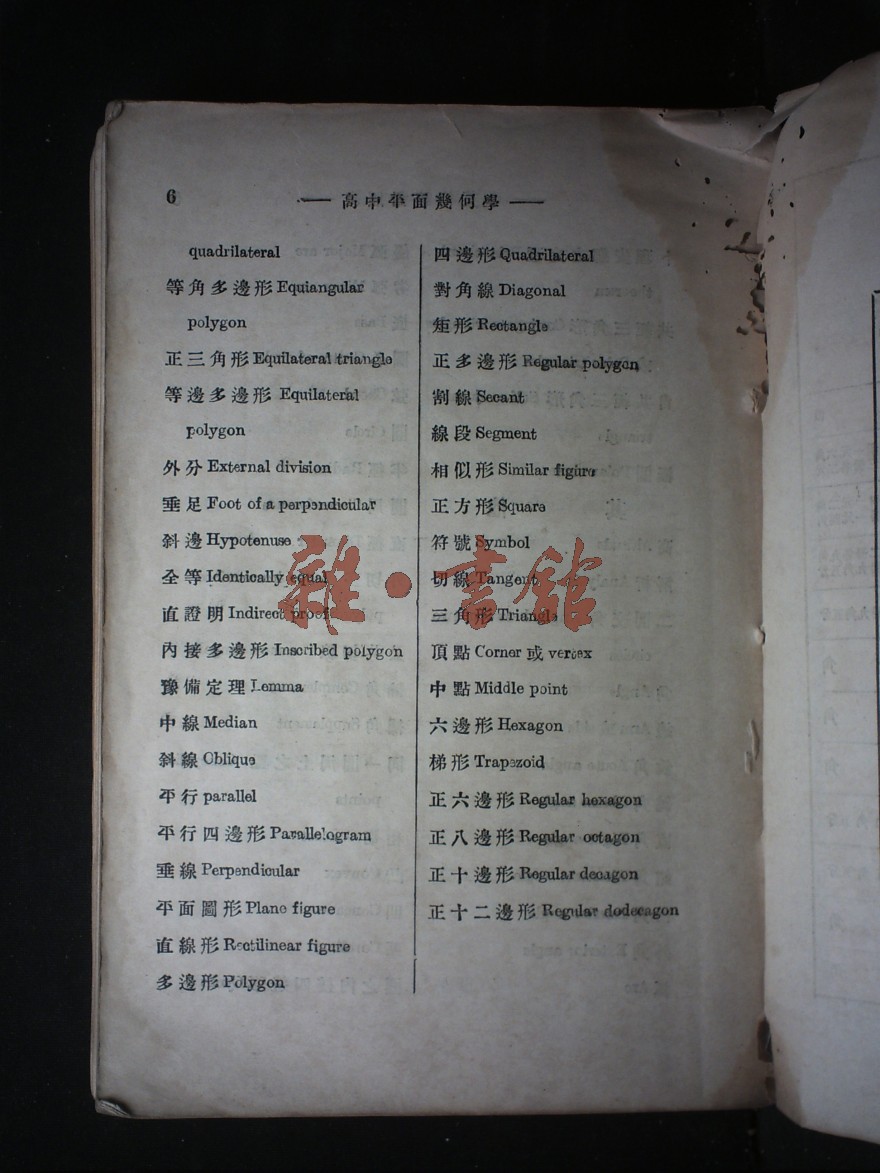 6
高中平面幾何學
quadrilateral
等角多邊形 Equiangular
polygon
正三角形 Equilateral triangle
等邊多邊形 Equilateral
polygon
外分 External division
垂足 Foot of a perpendicular
斜邊 Hypotenuse
全等 Identically equal
直證明 Indirect proof
內接多邊形 Inscribed polygon
豫備定理 Lemma
中線 Median
斜線 Oblique
平行 parallel
平行四邊形 Parallelogram
垂線 Perpendicular
平面圖形 Plane figure
直線形 Rectilinear figure
多邊形 Polygon
四邊形 Quadrilateral
對角線 Diagonal
矩形 Rectangle
正多邊形 Regular polygon
割線 Secant
線段 Segment
相似形 Similar figure
正方形 Square
符號 Symbol
切線 Tangent
三角形 Triangle
頂點 Corner 或 vertex
中點 Middle point
六邊形 Hexagon
梯形 Trapezoid
正六邊形 Regular hexagon
正八邊形 Regular octagon
正十邊形 Regular decagon
正十二邊形 Regular dodecagon
雜·書館